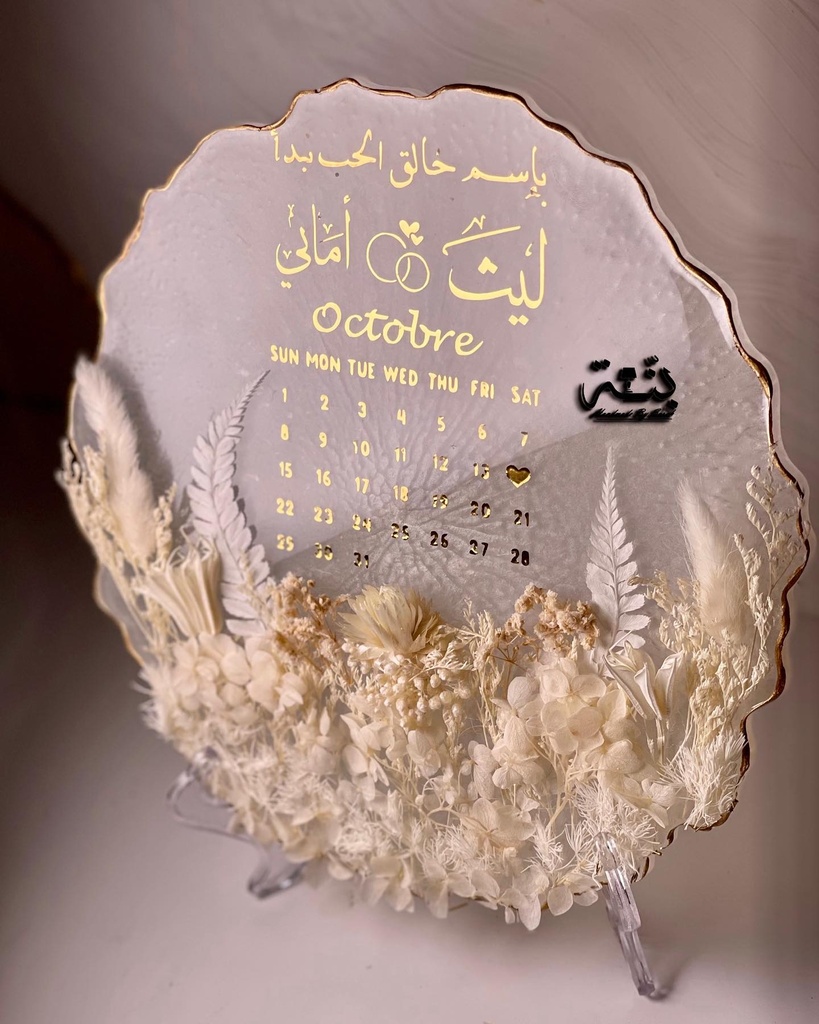 بإسم خالق الحب نبدأ
ليث أماني
Octobre
SUN MON TUE WED THU FRI SAT
1 2 3 4 5 6 7
8 9 10 11 12 13
15 16 17 18 19 20 21
22 23 24 25 26 27 28
25 30 31